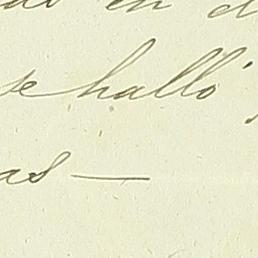 en
se halló
as —